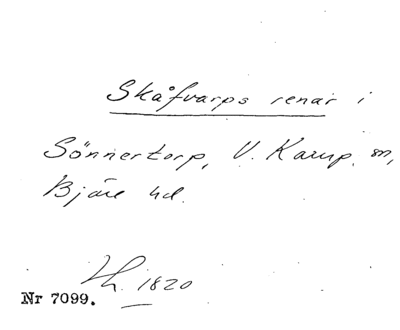 Skåfvarps renar i
Sönnertorp, V. Karup sn,
Bjäre hd.
Lh. 1820
Nr 7099.